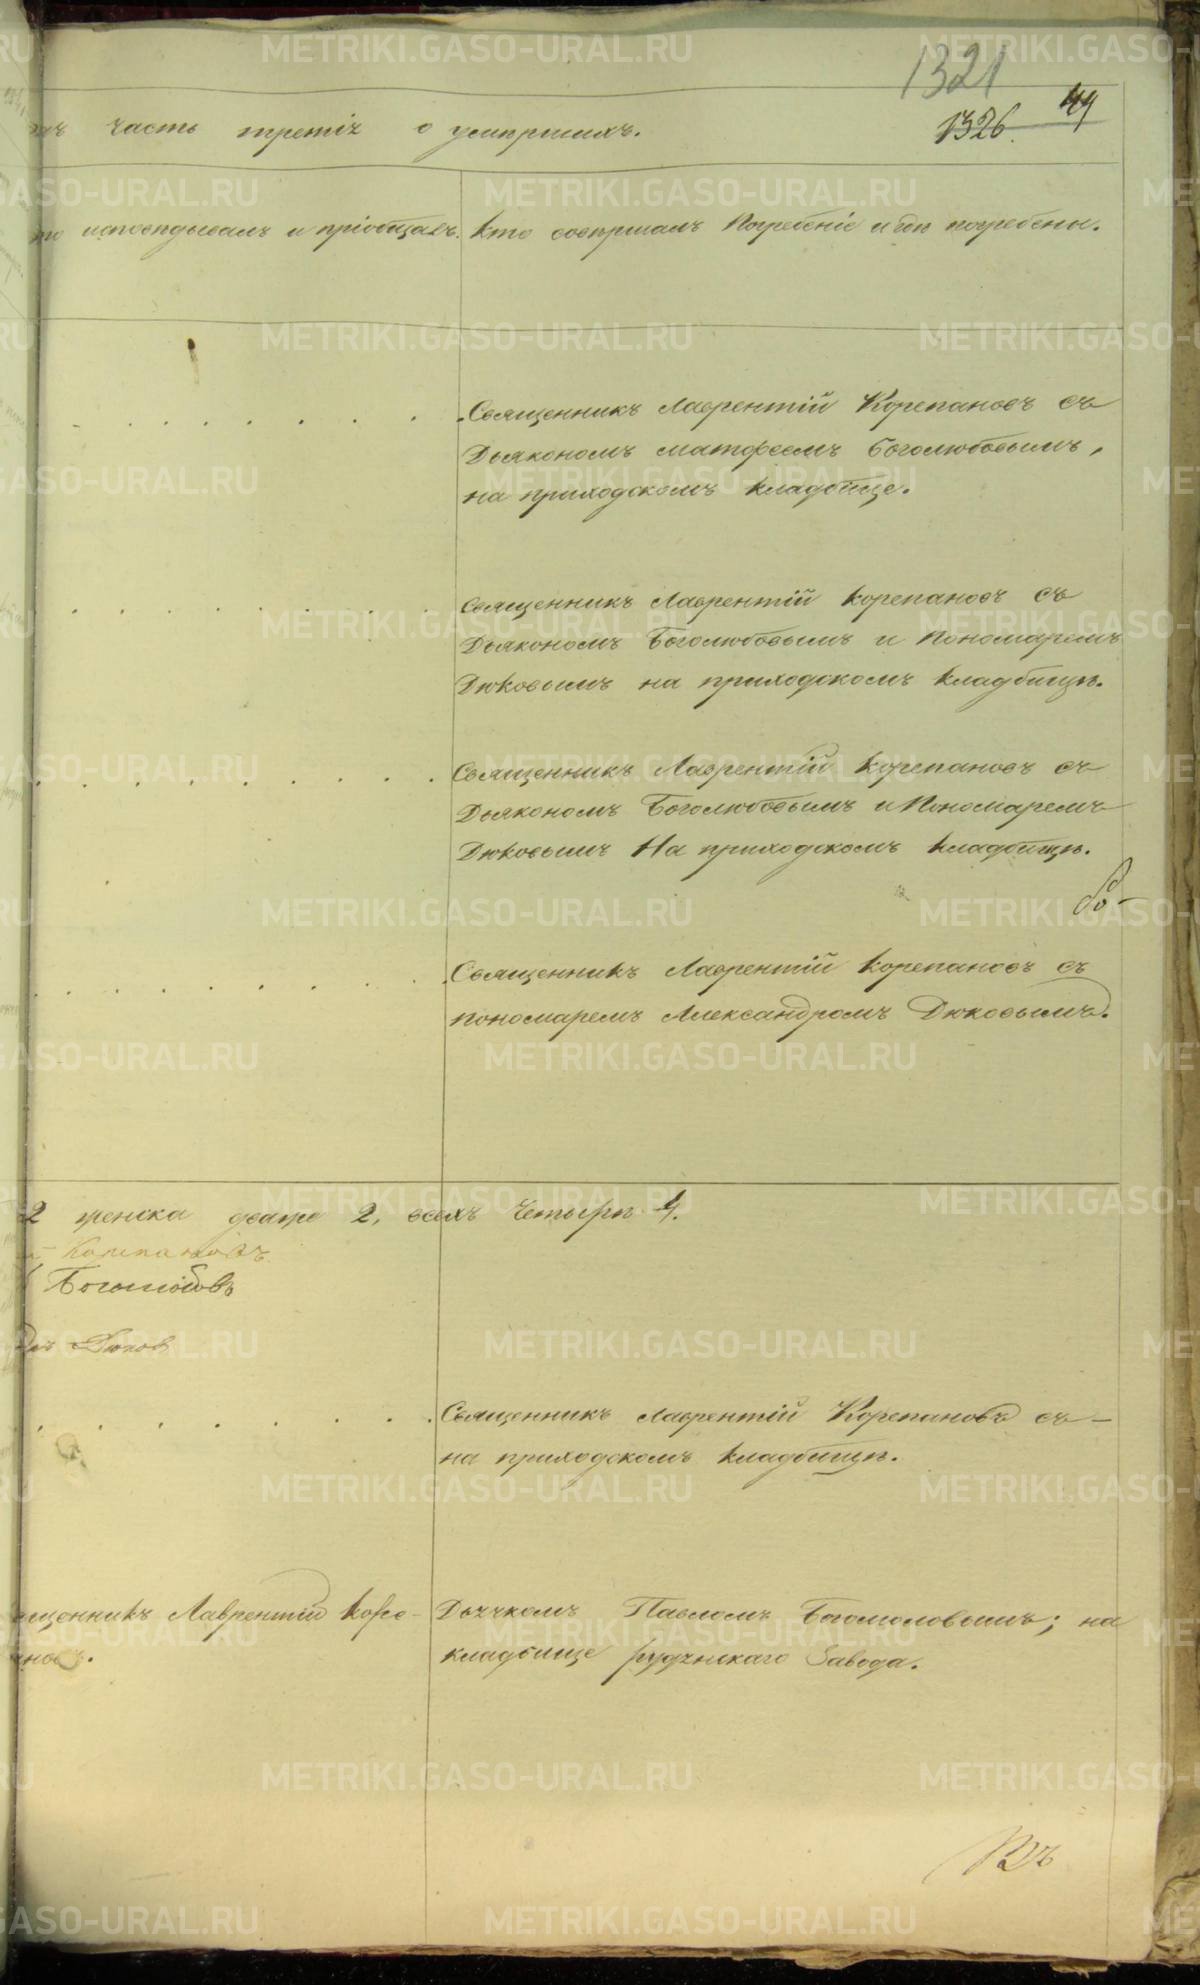 1321
1326. 49
часть третія о умершихъ.
исповѣдывалъ и пріобщалъ.
Кто совершалъ Погребеніе и гдѣ погребены.
Священникъ Лаврентій Корепановъ съ
Дьякономъ Матфеемъ Боголюбовымъ,
на приходскомъ кладбище.
Священникъ Лаврентій Корепановъ съ
Дьякономъ Боголюбовымъ и Пономаремъ
Дюковымъ на приходскомъ кладбищѣ.
Священникъ Лаврентій Корепановъ съ
Дьякономъ Боголюбовымъ и Пономаремъ
Дюковымъ На приходскомъ кладбищѣ.
Священникъ Лаврентій Корепановъ съ
пономаремъ Александромъ Дюковымъ.
2 женска двагро 2, всѣхъ Четыре 4.
Корепановъ
Боголюбовъ
Дюков
Священникъ Лаврентій Корепановъ съ
на приходскомъ кладбищѣ.
щенникъ Лаврентій Коре-
новъ.
Дьячкомъ Павломъ Богомоловымъ; на
кладбище рудянскаго Завода.
Въ
METRIKI.GASO-URAL.RU